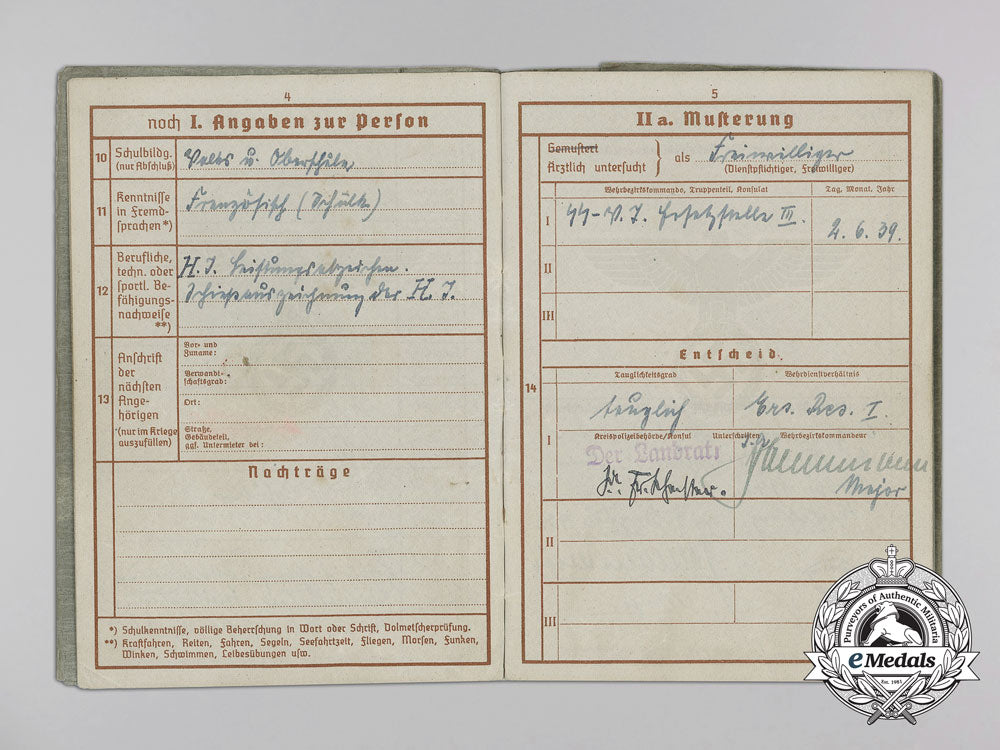 4
noch I. Angaben zur Person
10 Schulbildg.
(nur Abschluß)
Volks u. Oberschule
11 Kenntnisse
in Fremd-
sprachen*)
Französisch (Schulk.)
12 Berufliche,
techn. oder
sportl. Be-
fähigungs-
nachweise
**)
H. J. Leistungsabzeichen.
Schießauszeichnung der H. J.
13 Anschrift
der
nächsten
Ange-
hörigen
(nur im Kriege
auszufüllen)
Vor- und
Zuname:
Verwandt-
schaftsgrad:
Ort:
Straße,
Gebäudeteil,
ggf. Untermieter bei:
Nachträge
*) Schulkenntnisse, völlige Beherrschung in Wort oder Schrift, Dolmetscherprüfung.
**) Kraftfahren, Reiten, Fahren, Segeln, Seefahrtzeit, Fliegen, Morsen, Funken,
Winken, Schwimmen, Leibesübungen usw.
5
IIa. Musterung
Gemustert
Ärztlich untersucht } als Freiwilliger
(Dienstpflichtiger, Freiwilliger)
Wehrbezirkskommando, Truppenteil, Konsulat
Tag, Monat, Jahr
I
SS-V.T. Ersatzstelle III.
2. 6. 39.
II
III
Entscheid
14
Tauglichkeitsgrad
Wehrdienstverhältnis
I
tauglich
Ers. Res. I.
Kreispolizeibehörde/Konsul Unterschriften Wehrbezirkskommandeur
Der Landrat
Major
II
III
Purveyors of Authentic Militaria
eMedals
Est. 1981